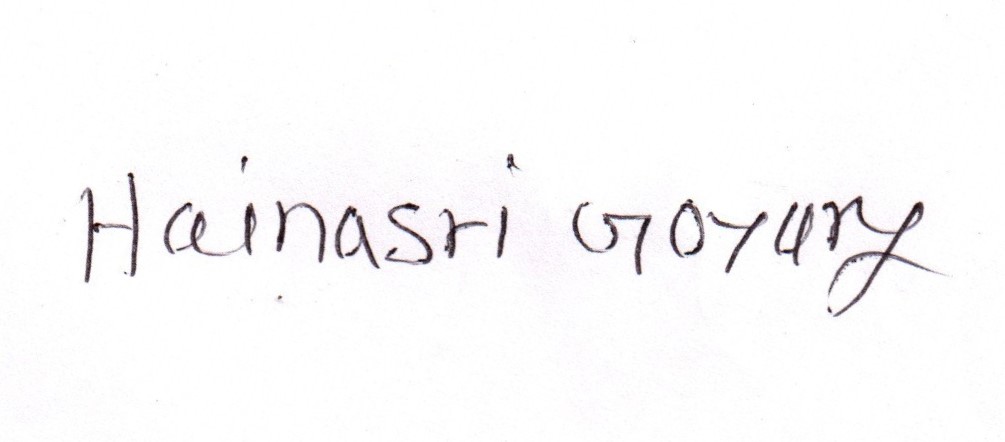 Hainasri Goyary